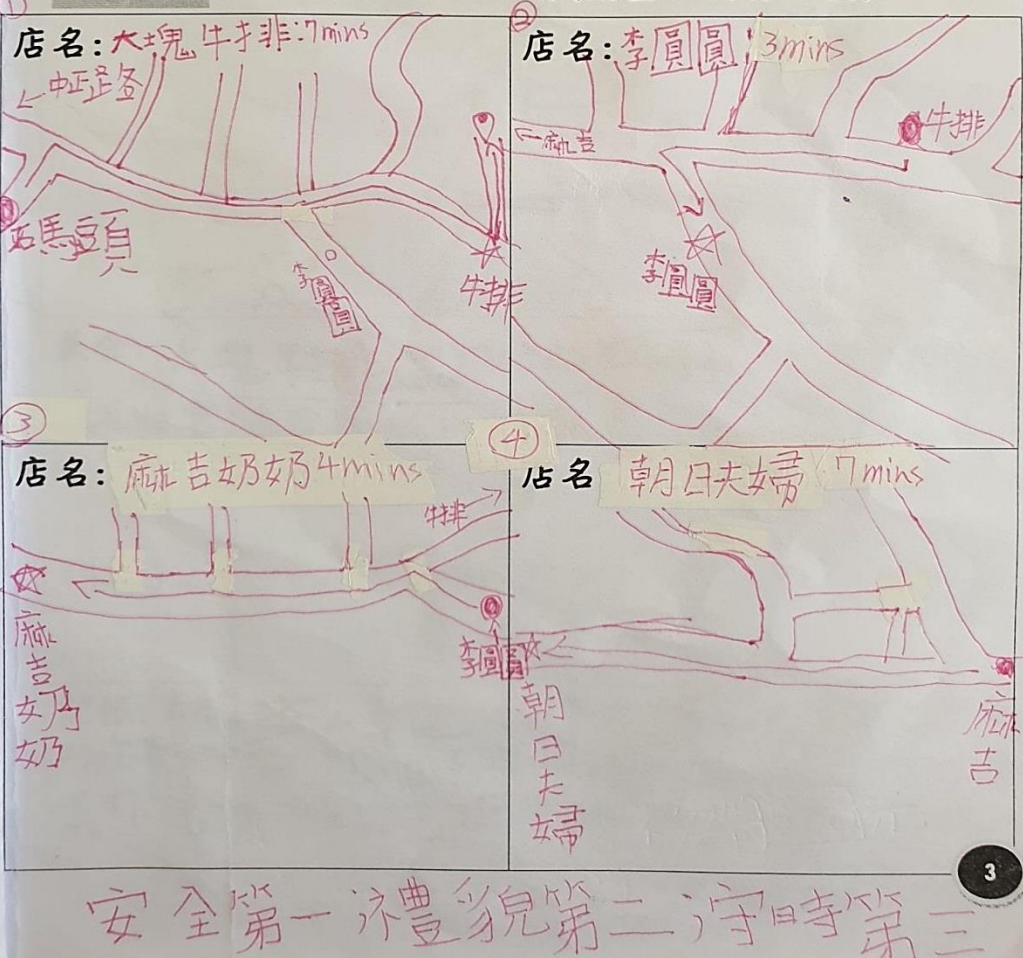 ①
店名:大塊牛排:7mins
←中正路
馬頭
李圓圓
牛排
②
店名:李圓圓 3mins
←麻吉
牛排
李圓圓
③
店名:麻吉奶奶4mins
牛排
麻吉奶奶
李圓圓
④
店名 朝日夫婦 7mins
朝日夫婦
麻吉
3
安全第一禮貌第二守時第三